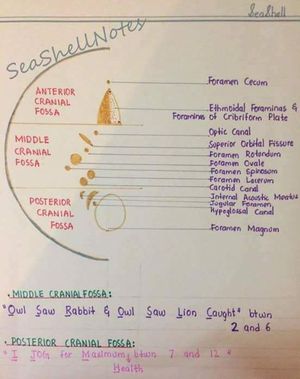 SeaShell
SeaShellNotes
Foramen Cecum
ANTERIOR
CRANIAL
FOSSA
Ethmoidal Foramina &
Foramina of Cribriform Plate
Optic Canal
MIDDLE
CRANIAL
FOSSA
Superior Orbital Fissure
Foramen Rotundum
Foramen Ovale
Foramen Spinosum
Foramen Lacerum
Carotid Canal
Internal Acoustic Meatus
Jugular Foramen
Hypoglossal Canal
POSTERIOR
CRANIAL
FOSSA
Foramen Magnum
• MIDDLE CRANIAL FOSSA:
"Owl Saw Rabbit & Owl Saw Lion Caught" btwn
2 and 6
• POSTERIOR CRANIAL FOSSA:
"I JOG for Maximum btwn 7 and 12"
Health